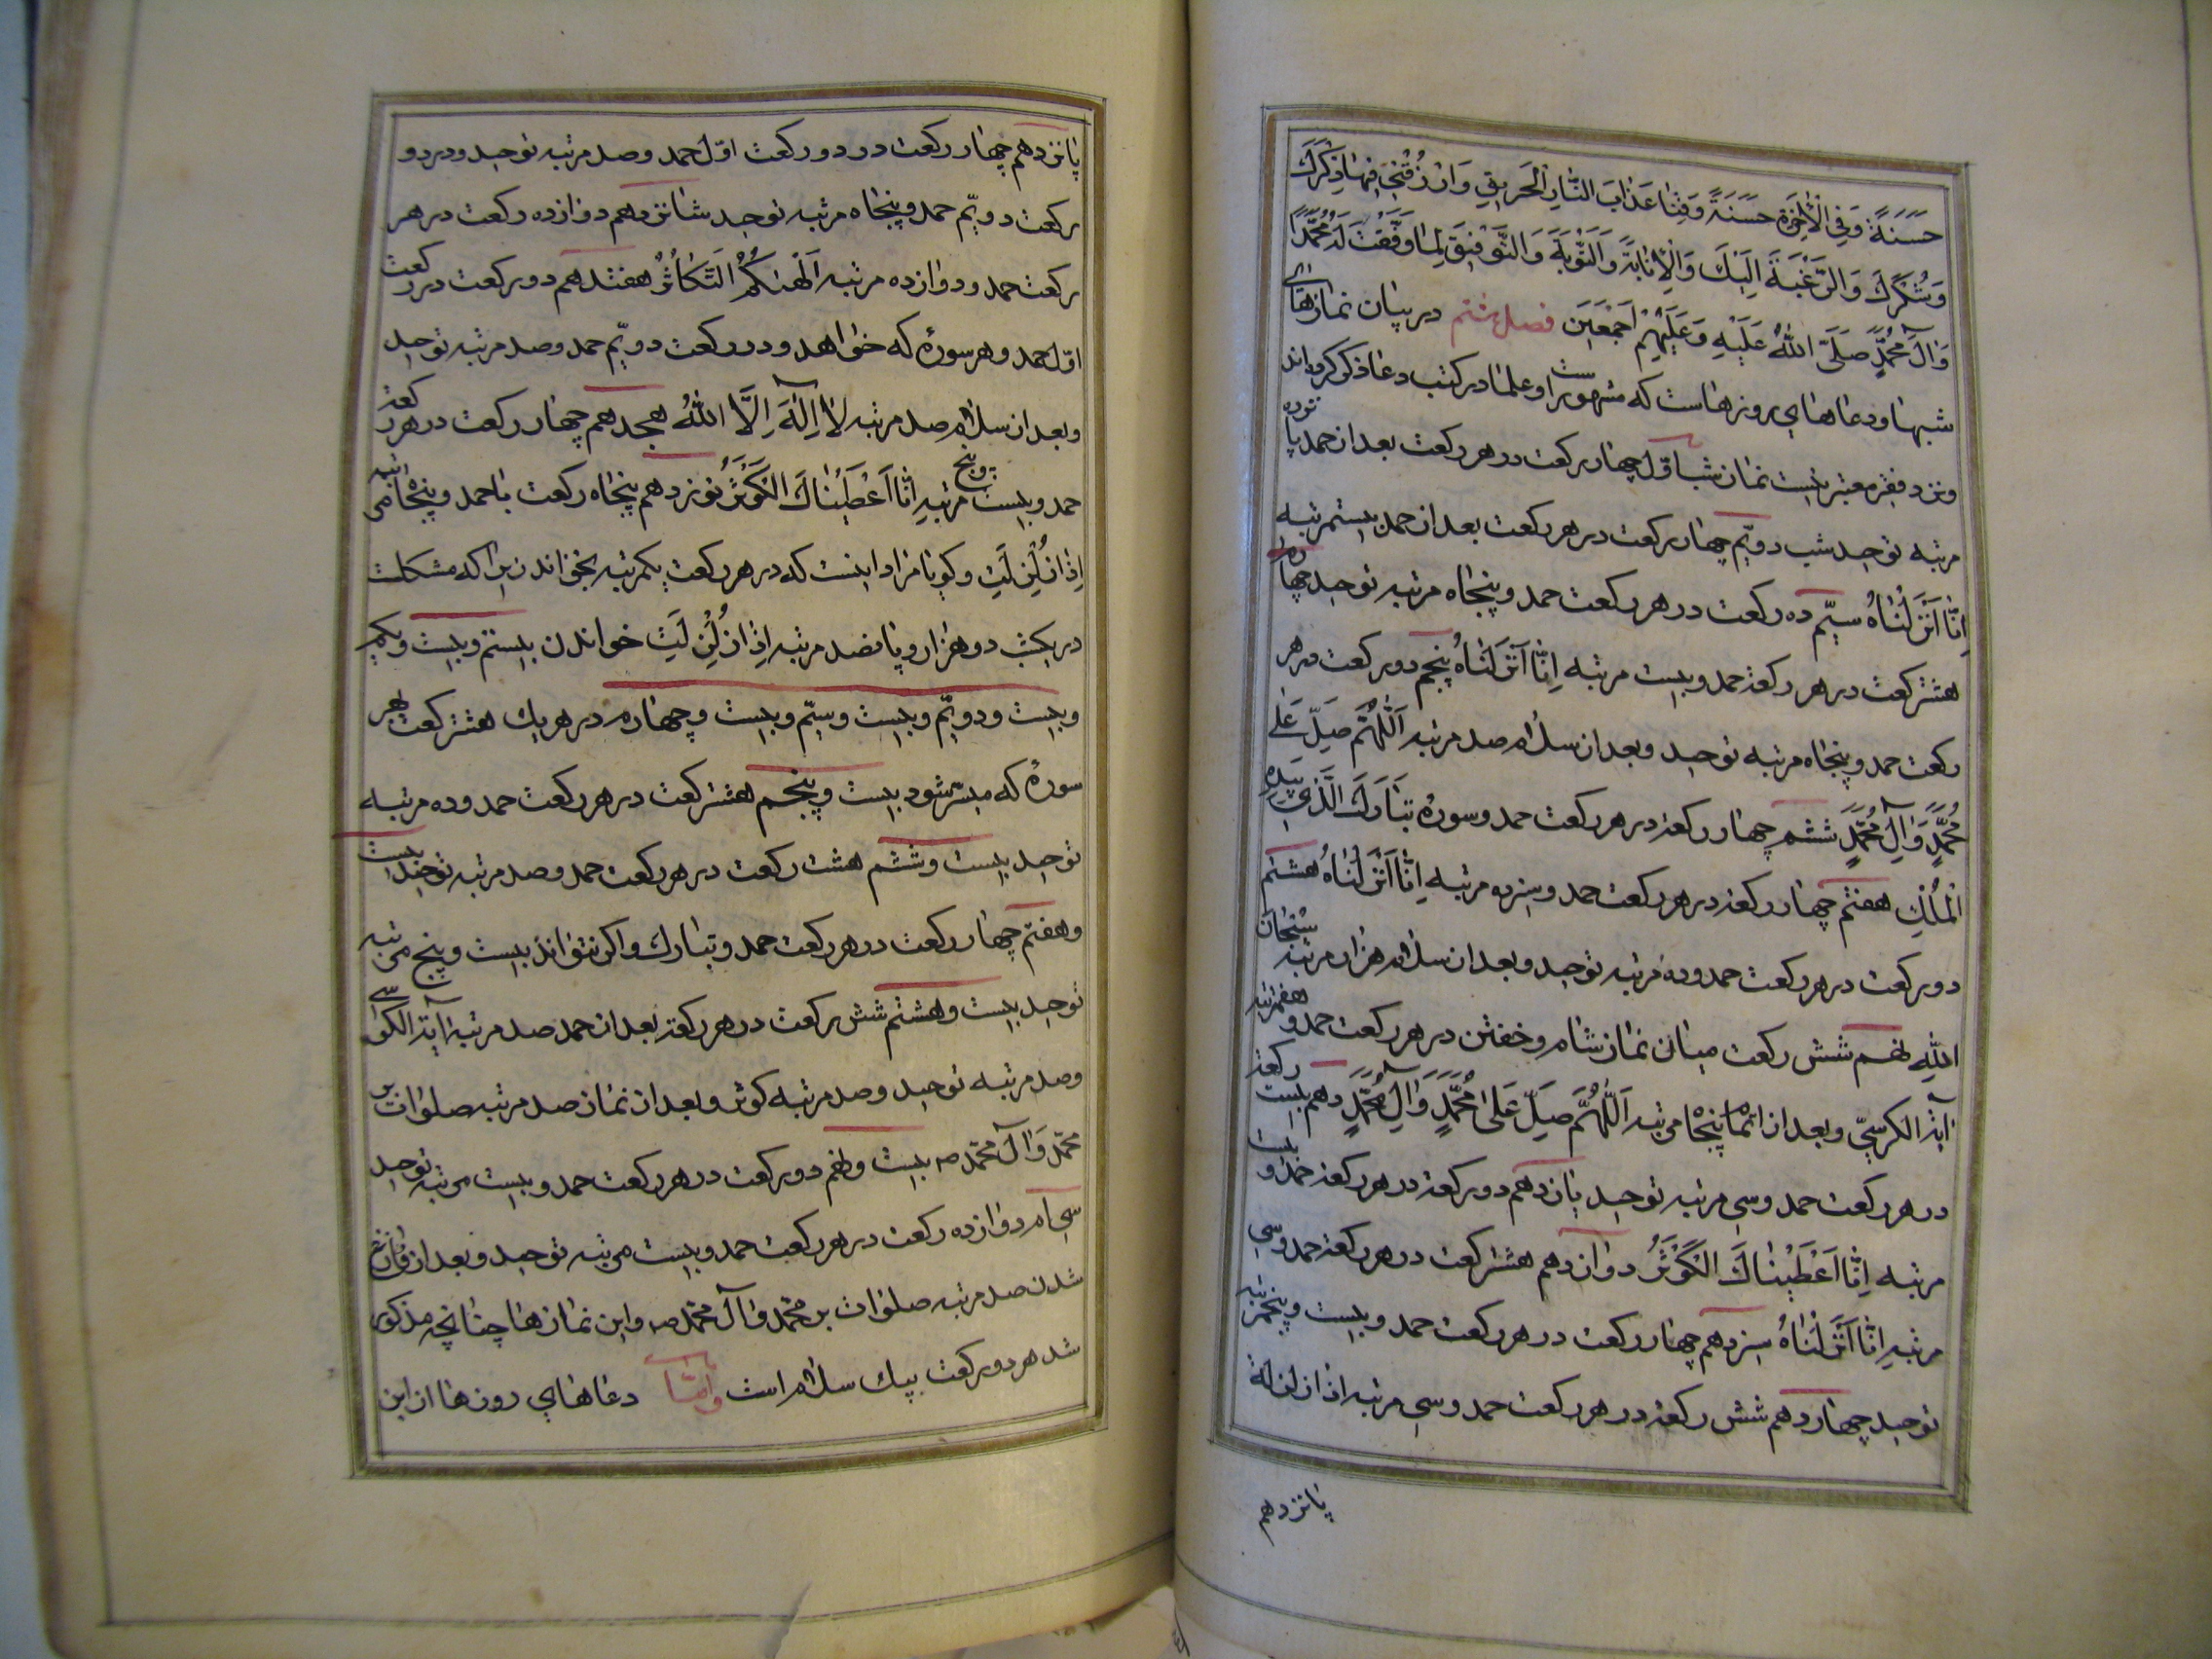 حَسَنَةً وَفِي الْاٰخِرَةِ حَسَنَةً وَقِنَا عَذَابَ النَّارِ الْحَرِيقِ وَارْزُقْنِي فِيهَا ذِكْرَكَ
وَشُكْرَكَ وَالرَّغْبَةَ اِلَيْكَ وَالْاِنَابَةَ وَالتَّوْبَةَ وَالتَّوْفِيقَ لِمَا وَفَّقْتَ لَهُ مُحَمَّدًا
وَاٰلَ مُحَمَّدٍ صَلَّى اللّٰهُ عَلَيْهِ وَعَلَيْهِمْ اَجْمَعِينَ فصل هشتم در بيان نمازهاى
شبها و دعاهاي روزهاست كه مشهورست و علما در كتب دعا ذكر كرده‌اند
و نزد فقير معتبر نيست نماز شب اوّل چهار ركعت در هر ركعت بعد از حمد پانزده
مرتبه توحيد شب دويّم چهار ركعت در هر ركعت بعد از حمد بيست مرتبه
اِنَّا اَنْزَلْنَاهُ سيّم ده ركعت در هر ركعت حمد و پنجاه مرتبه توحيد چهارم
هشت ركعت در هر ركعت حمد و بيست مرتبه اِنَّا اَنْزَلْنَاهُ پنجم دو ركعت در هر
ركعت حمد و پنجاه مرتبه توحيد و بعد از سلام صد مرتبه اَللّٰهُمَّ صَلِّ عَلٰى
مُحَمَّدٍ وَاٰلِ مُحَمَّدٍ ششم چهار ركعت در هر ركعت حمد و سورهٔ تَبَارَكَ الَّذِي بِيَدِهِ
الْمُلْكُ هفتم چهار ركعت در هر ركعت حمد و سيزده مرتبه اِنَّا اَنْزَلْنَاهُ هشتم
دو ركعت در هر ركعت حمد و ده مرتبه توحيد و بعد از سلام هزار مرتبه سُبْحَانَ
اللّٰهِ نهم شش ركعت ميان نماز شام و خفتن در هر ركعت حمد و هفت مرتبه
آية الكرسيّ و بعد از اتمام پنجاه مرتبه اَللّٰهُمَّ صَلِّ عَلٰى مُحَمَّدٍ وَاٰلِ مُحَمَّدٍ دهم بيست ركعت
در هر ركعت حمد و سي مرتبه توحيد يازدهم دو ركعت در هر ركعت حمد و بيست
مرتبه اِنَّا اَعْطَيْنَاكَ الْكَوْثَرَ دوازدهم هشت ركعت در هر ركعت حمد و سي
مرتبه اِنَّا اَنْزَلْنَاهُ سيزدهم چهار ركعت در هر ركعت حمد و بيست و پنج مرتبه
توحيد چهاردهم شش ركعت در هر ركعت حمد و سي مرتبه اذا زلزلة
پانزدهم
پانزدهم چهار ركعت در دو ركعت اوّل حمد و صد مرتبه توحيد و در دو
ركعت دويّم حمد و پنجاه مرتبه توحيد شانزدهم دوازده ركعت در هر
ركعت حمد و دوازده مرتبه اَلْهٰيكُمُ التَّكَاثُرُ هفتدهم دو ركعت در ركعت
اوّل حمد و هر سورهٔ كه خواهد و در ركعت دويّم حمد و صد مرتبه توحيد
و بعد از سلام صد مرتبه لَا اِلٰهَ اِلَّا اللّٰهُ هجدهم چهار ركعت در هر ركعت
حمد و بيست و پنج مرتبه اِنَّا اَعْطَيْنَاكَ الْكَوْثَرَ نوزدهم پنجاه ركعت با حمد و پنجاه مرتبه
اِذَا زُلْزِلَتِ و گويا مراد اينست كه در هر ركعت يكمرتبه بخواند زيرا كه مشكلست
در يكشب دو هزار و پانصد مرتبه اِذَا زُلْزِلَتِ خواندن بيستم و بيست و يكم
و بيست و دويّم و بيست و سيّم و بيست و چهارم در هر يك هشت ركعت بهر
سورهٔ كه ميسّر شود بيست و پنجم هشت ركعت در هر ركعت حمد و ده مرتبه
توحيد بيست و ششم هشت ركعت در هر ركعت حمد و صد مرتبه توحيد بيست
و هفتم چهار ركعت در هر ركعت حمد و تبارك و اگر نتواند بيست و پنج مرتبه
توحيد بيست و هشتم شش ركعت در هر ركعت بعد از حمد صد مرتبه آية الكرسي
و صد مرتبه توحيد و صد مرتبه كوثر و بعد از نماز صد مرتبه صلوات بر
محمّد وَآل محمّد ص بيست و نهم دو ركعت در هر ركعت حمد و بيست مرتبه توحيد
سي‌ام دوازده ركعت در هر ركعت حمد و بيست مرتبه توحيد و بعد از فارغ
شدن صد مرتبه صلوات بر محمّد و آل محمّد ص و اين نمازها چنانچه مذكور
شد هر دو ركعت بيك سلام است و امّا دعاهاي روزها از اين